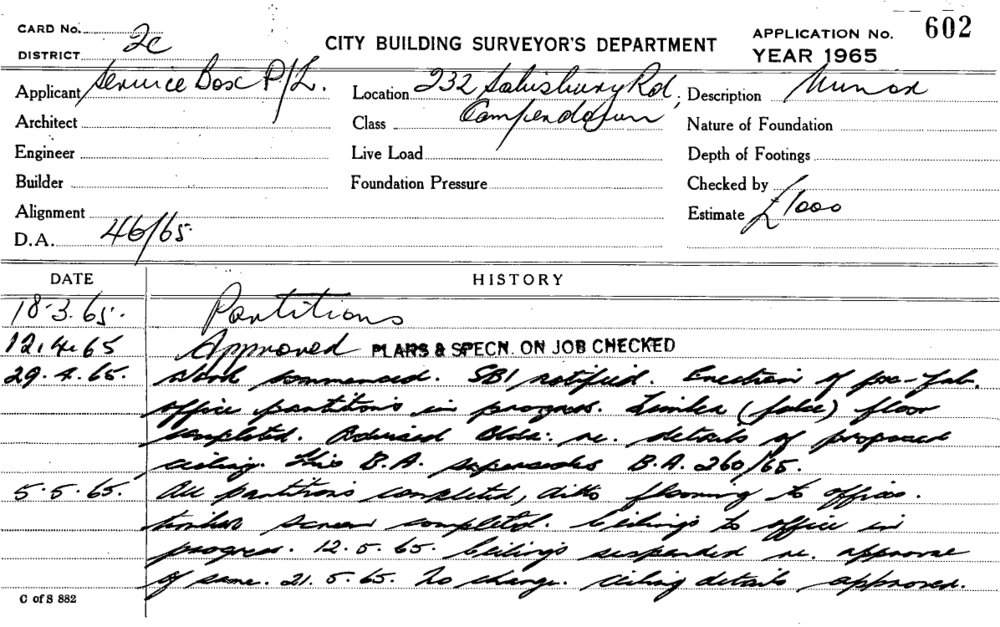 CARD No.
DISTRICT 2c
CITY BUILDING SURVEYOR'S DEPARTMENT
APPLICATION No. 602
YEAR 1965
Applicant Service Box P/L.
Location 232 Salisbury Rd,
Camperdown
Description Minor
Architect
Class
Nature of Foundation
Engineer
Live Load
Depth of Footings
Builder
Foundation Pressure
Checked by
Alignment
Estimate £1000
D.A. 46/65
DATE HISTORY
18.3.65. Partitions
12.4.65 Approved PLANS & SPECN. ON JOB CHECKED
29.4.65. Work commenced. SBI notified. Erection of pre-fab.
office partitions in progress. Timber (false) floor
completed. Advised Bldr: re. details of proposed
ceiling. This B.A. supersedes B.A. 260/65.
5.5.65. All partitions completed, ditto flooring to offices.
timber screen completed. Ceilings to office in
progress. 12.5.65. Ceilings suspended re. approval
of same. 21.5.65. No change. Ceiling details approved.
C of S 882